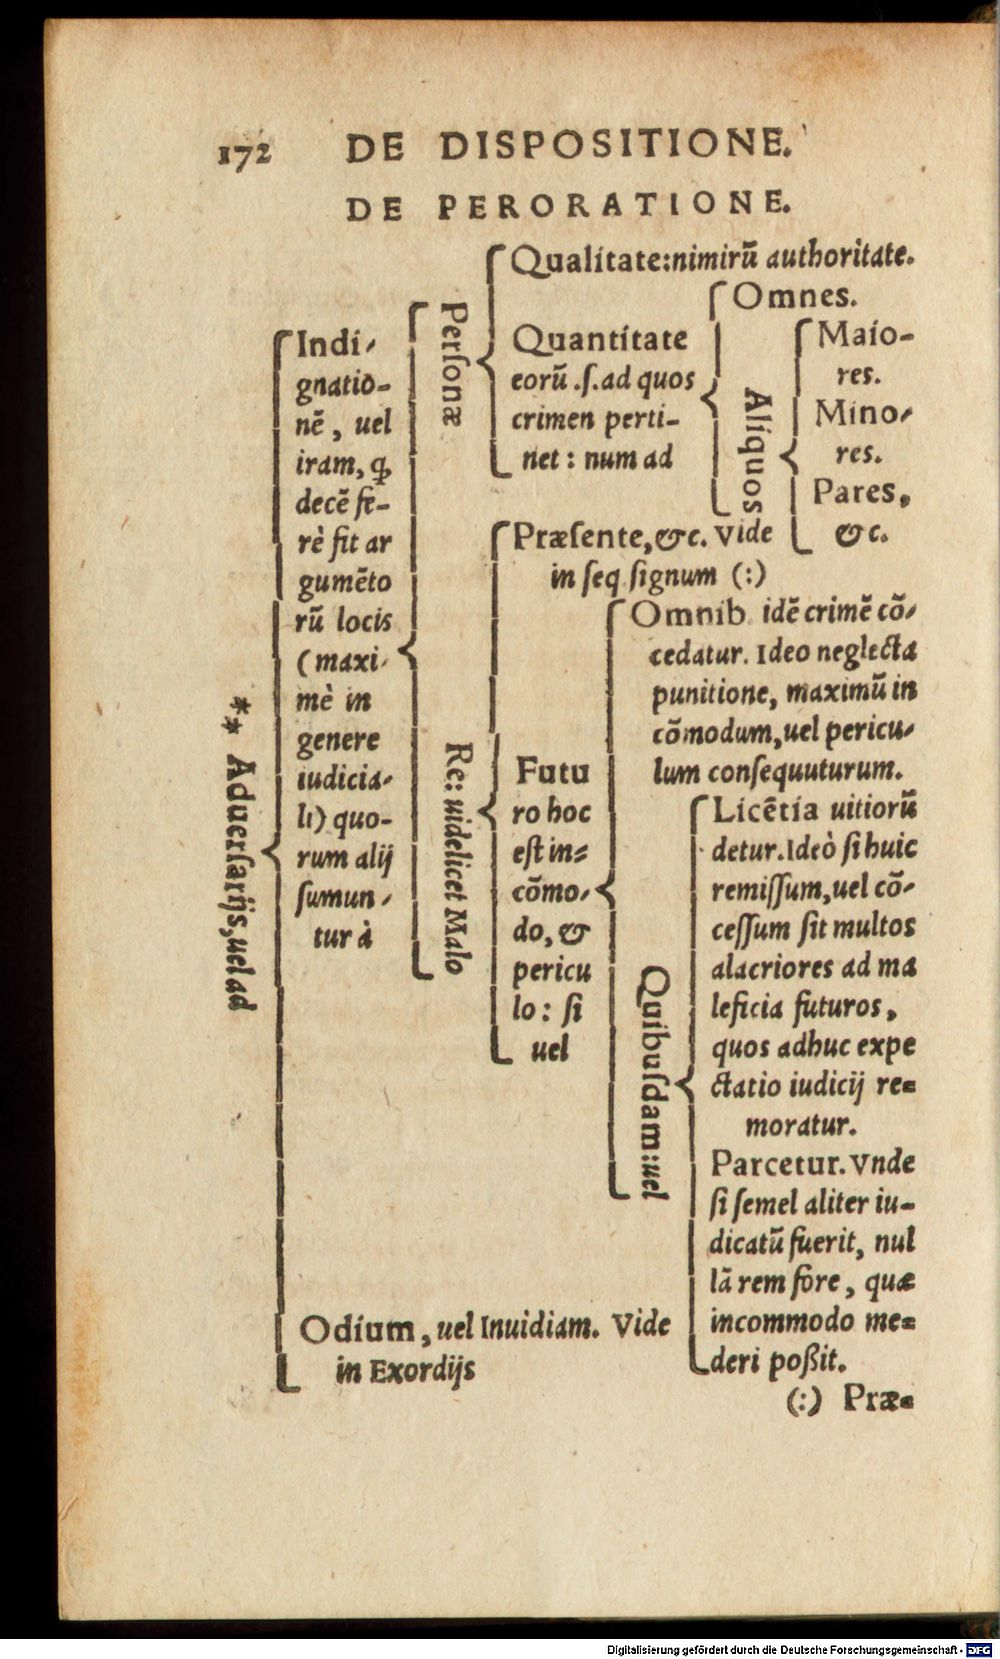 172 DE DISPOSITIONE.
DE PERORATIONE.
** Aduersarijs, uel ad
Indi-
gnatio-
nē, uel
iram, ꝙ
decē fe-
rè fit ar
gumēto
rū locis
(maxi-
mè in
genere
iudicia-
li) quo-
rum alij
sumun-
tur à
Personæ
Qualitate: nimirū authoritate.
Quantitate
eorū .ſ. ad quos
crimen perti-
net: num ad
Omnes.
Aliquos
Maio-
res.
Mino-
res.
Pares,
&c.
Re: uidelicet Malo
Præsente, &c. Vide
in seq signum (:)
Futu
ro hoc
est in=
cōmo-
do, &
pericu
lo: si
uel
Omnib idē crimē cō-
cedatur. Ideo neglecta
punitione, maximū in
cōmodum, uel pericu-
lum consequuturum.
Quibusdam: uel
Licētia uitiorū
detur. Ideò si huic
remissum, uel cō-
cessum sit multos
alacriores ad ma
leficia futuros,
quos adhuc expe
ctatio iudicij re=
moratur.
Parcetur. Vnde
si semel aliter iu-
dicatū fuerit, nul
lā rem fore, quæ
incommodo me=
deri poßit.
Odium, uel Inuidiam. Vide
in Exordijs
(:) Præ=
Digitalisierung gefördert durch die Deutsche Forschungsgemeinschaft - DFG